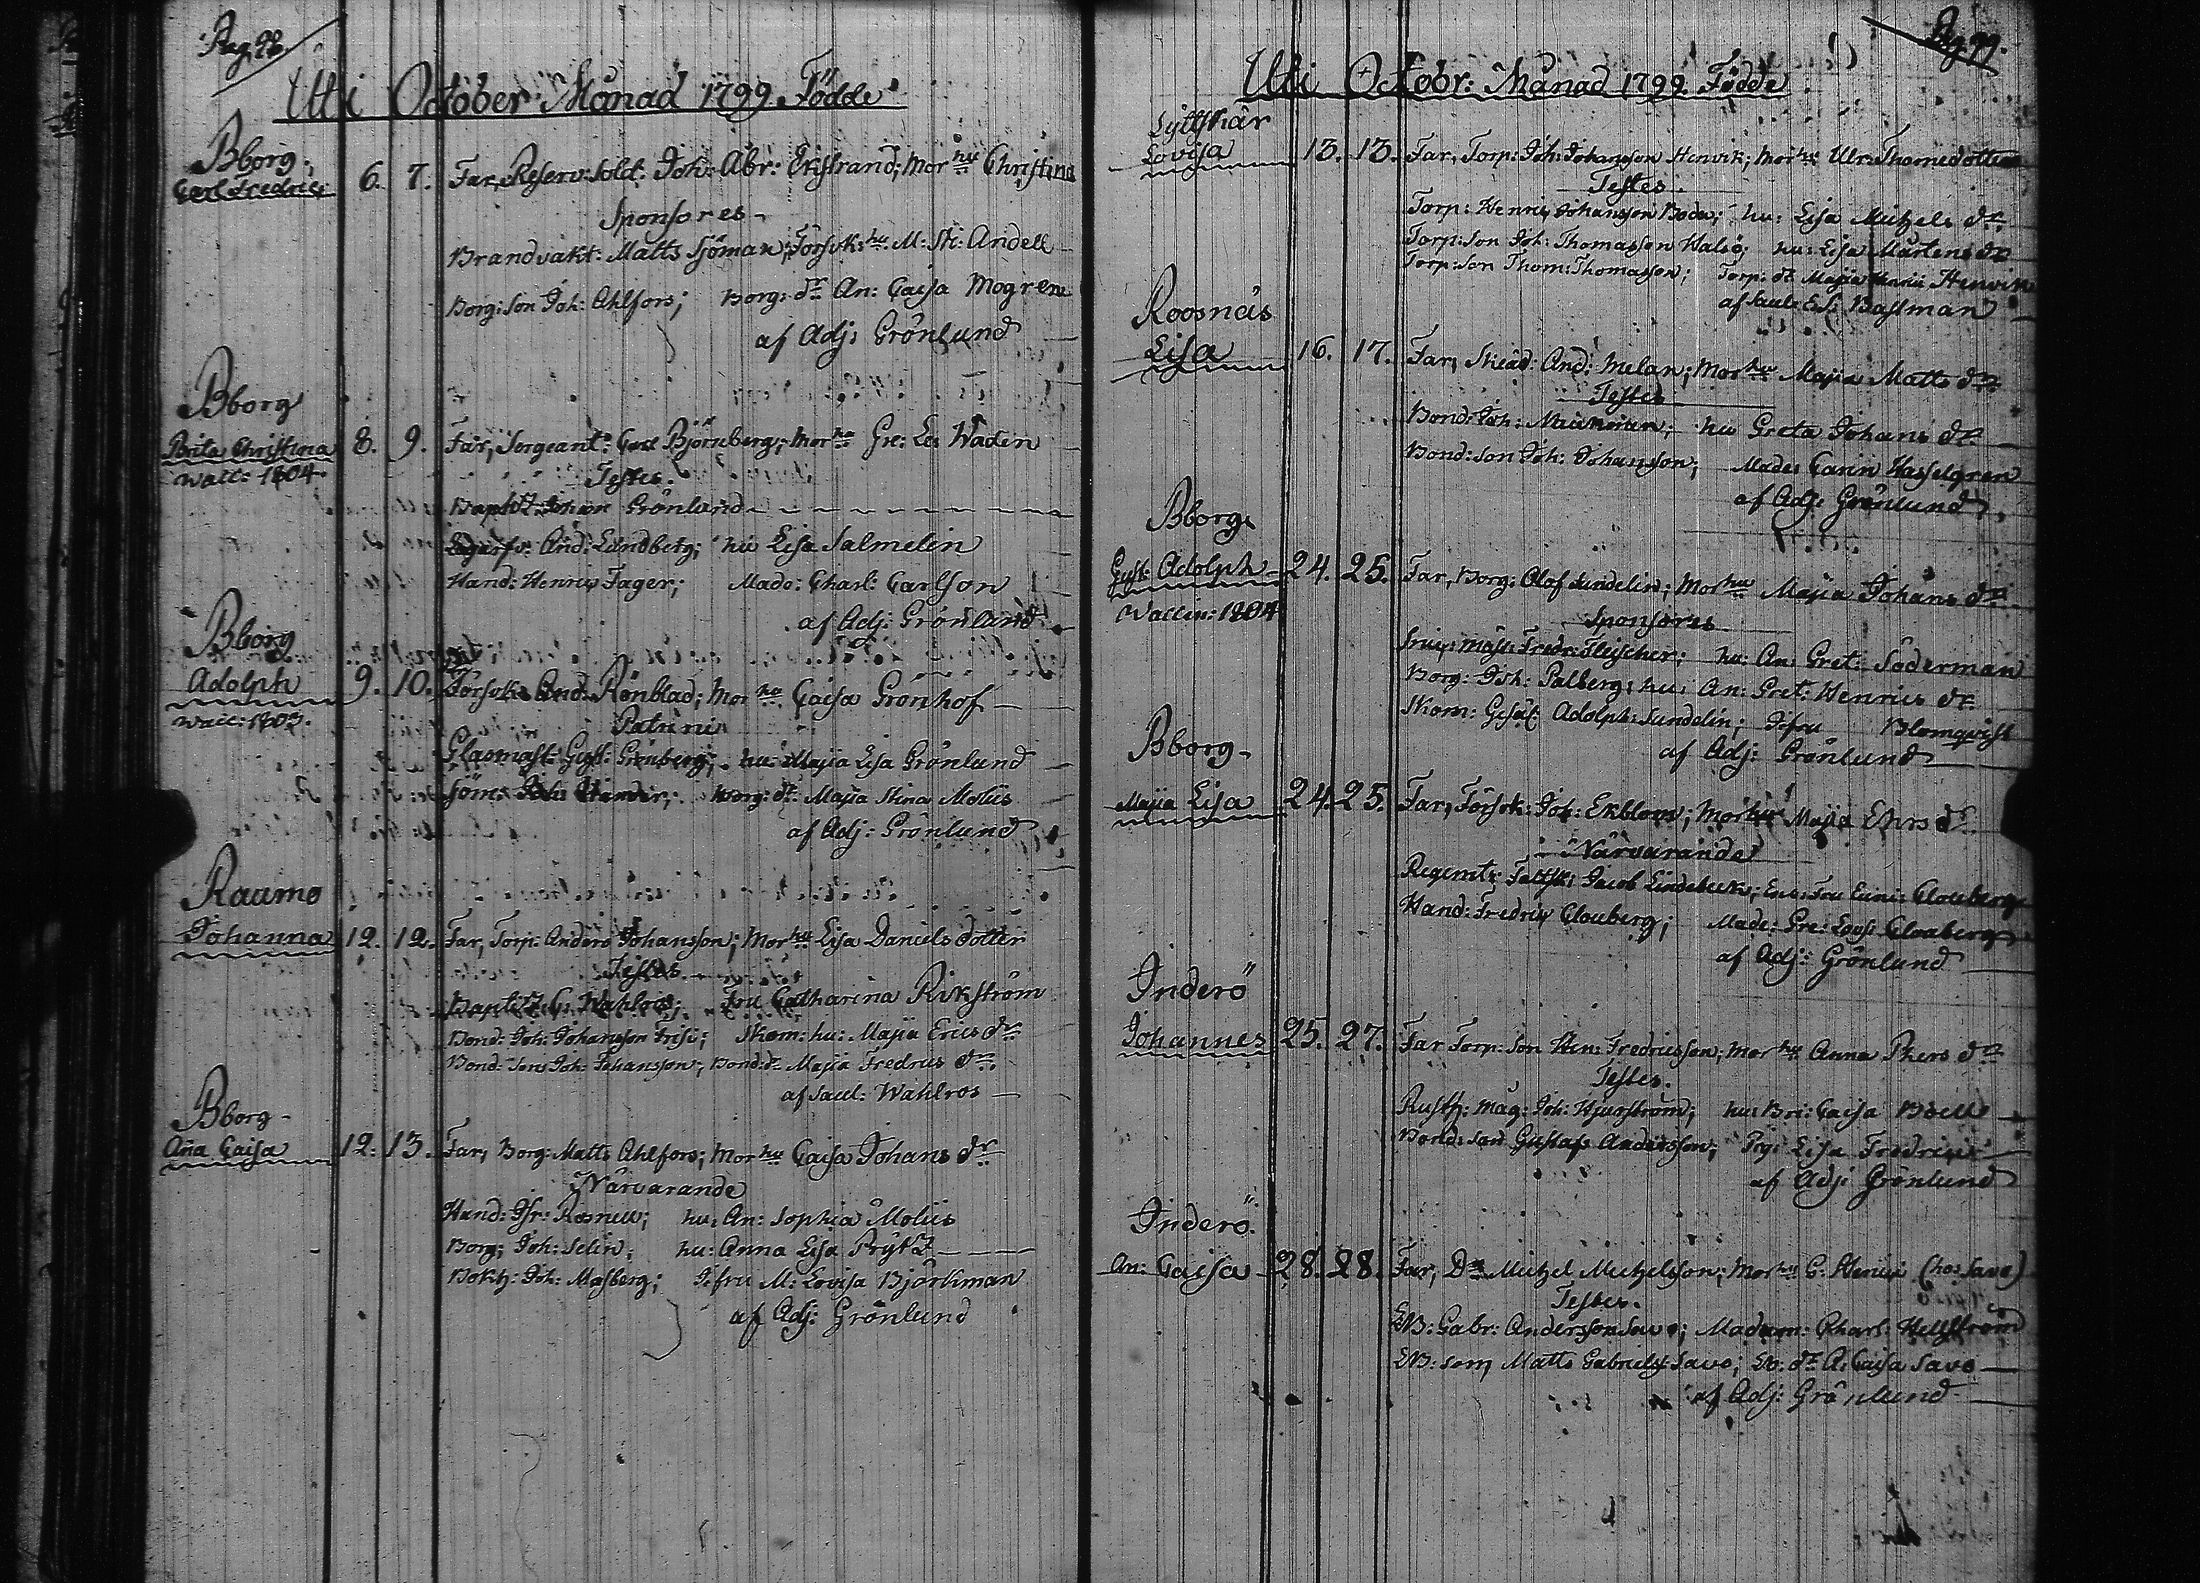 Pag. 98.
Uti October Månad 1799 Födde
Bborg.
Carl Fredric 6. 7. Far, Reserv: Sold: Joh: Abr: Ekstrand; Mor hu Christina
Sponsores
Brandvakt: Matts Sjöman; Försvk: hu M: Sti: Andell
Borg: Son Joh: Ahlfors; Borg: dr An: Caisa Mogren
af Adj: Grönlund
Bborg
Brita Christina 8. 9. Far, Sergeant: Carl Björnberg; Mor hu Gre: Lis Wadén
Wacc: 1804
Testes.
Johan Grönlund
And: Lundberg; hu Lisa Salmelin
Hand: Henric Fager; Made: Charl: Carlson
af Adj: Grönlund
Bborg
Adolph 9. 10. Försvk: And: Rönblad; Mor hu Caisa Grönhof
Wacc: 1803.
Patrini
Glasmäst: Gust: Grönberg; hu: Majia Lisa Grönlund
Borg: dr Majia Stina Moliis
af Adj: Grönlund
Raumo
Johanna 12. 12. Far, Torp: Anders Johansson; Mor hu Lisa Daniels dotter
Testes.
C: Wahlroos; Fru Catharina Rikström
Bond: Joh: Johansson Frisi; Skom: hu: Majia Erics dr
Bond: Son Joh: Johansson; Bond: dr Majia Fredrics dr
af Sacel: Wahlros
Bborg
Aña Caisa 12. 13. Far, Borg: Matts Ahlfors; Mor hu Caisa Johans dr
Närvarande
Hand: Rosnell; hu: An: Sophia Moliis
Borg: Joh: Selin; hu: Anna Lisa Prytz
Bokh: Joh: Masberg; Jfru M: Lovisa Björkman
af Adj: Grönlund
Pag. 99.
Uti Octobr: Månad 1799. Födde
Lyttskär
Lovisa 13. 13. Far, Torp: Joh: Johansson Henvik; Mor hu Ulr: Thomedotter
Testes.
Torp: Henric Johansson Boda; hu: Lisa Michels dr
Torp: Son Joh: Thomasson Halsö; hu: Lisa Mårtens dr
Torp: Son Thom: Thomasson; Torp: dr Majia Henvik
af Sacel: E: S: Bastman
Roosnäs
Lisa 16. 17. Far, Skräd: And: Melan; Mor hu Majia Matts dr
Testes
Bond: Joh: hu Greta Johans dr
Bond: Son Joh: Johansson; Made: Carin Hasselgren
af Adj: Grönlund
Bborg
Gust: Adolph 24. 25. Far, Borg: Olof Sundelin; Mor hu Majia Johans dr
Waccin: 1804
Sponsores
Snic: mäst: Fredr: Fleischer; hu: An: Gret: Söderman
Borg: Joh: Palberg; hu: An: Gret: Henrics dr
Skom: Gesäl: Adolph: Sundelin; Jfru Blomqvist
af Adj: Grönlund
Bborg
Majia Lisa 24. 25. Far, Försvk: Joh: Ekblom; Mor hu Majia Ehrs dr
Närvarande
Regemts: Fältsk: Jacob Lindebeck; Enk: Fru Clouberg
Hand: Fredric Clouberg; Made: Gre: Lovis: Clouberg
af Adj: Grönlund
Inderö
Johannes 25. 27. Far Torp: Son Hen: Fredricsson; Mor hu Anna Phers dr
Testes.
Rusth: Mag: Joh: Hjerström; hu: Bri: Caisa Boelle
Bond: Son Gustaf Andersson; Pig: Lisa Fredrics
af Adj: Grönlund
Inderö.
An: Caisa 28. 28. Far, Dr Michel Michelsson; Mor hu C: Henric (hos Savo)
Testes.
EB: Gabr: Andersson Savo; Madam: Charl: Hellström
EB: Son Matts Gabriels: Savo; EB: dr A: Caisa Savo
af Adj: Grönlund